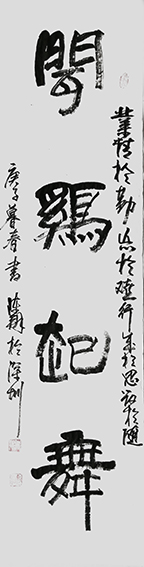 業精於勤荒於嬉行成於思毀於隨
聞鷄起舞
庚子暮春書 於深圳